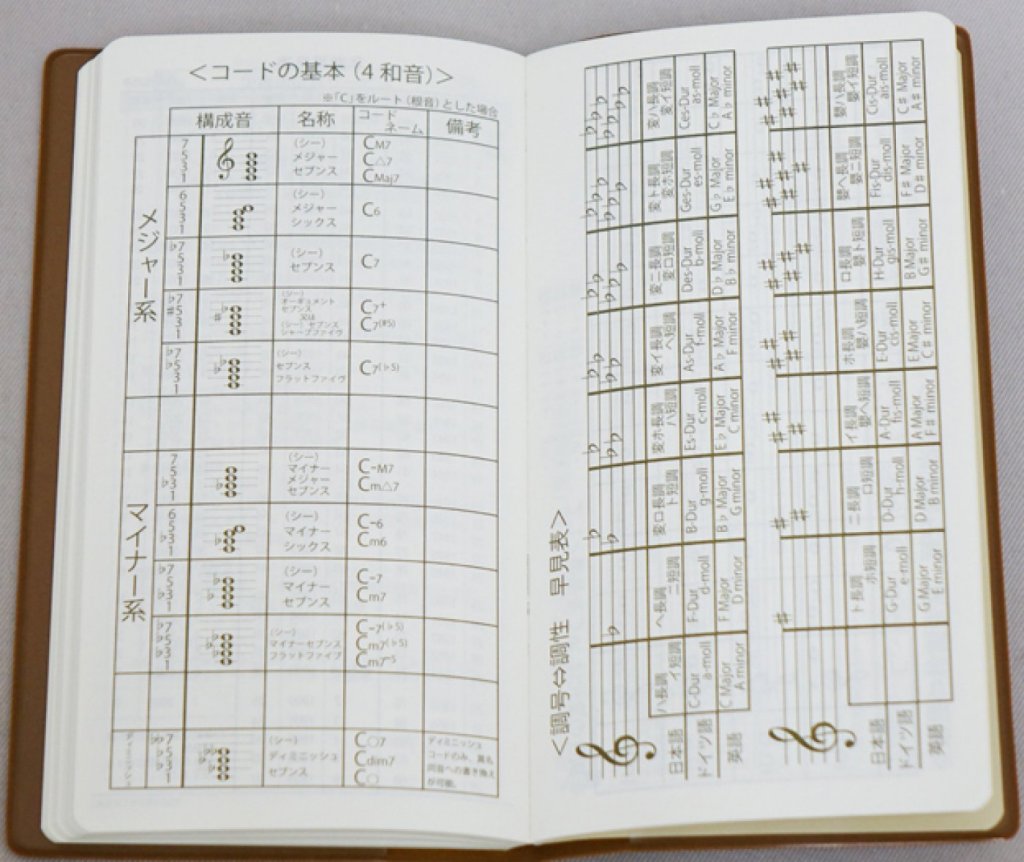 ＜コードの基本（4和音）＞
※「C」をルート（根音）とした場合
構成音 名称 コードネーム 備考
メジャー系
7 5 3 1
（シー）
メジャー
セブンス
CM7
C△7
CMaj7
6 5 3 1
（シー）
メジャー
シックス
C6
♭7 5 3 1
（シー）
セブンス
C7
♭7 #5 3 1
（シー）
オーギュメント
セブンス
又は
（シー）セブンス
シャープファイヴ
C7+
C7(#5)
♭7 ♭5 3 1
（シー）
セブンス
フラットファイヴ
C7(♭5)
マイナー系
7 5 ♭3 1
（シー）
マイナー
メジャー
セブンス
C-M7
Cm△7
6 5 ♭3 1
（シー）
マイナー
シックス
C-6
Cm6
♭7 5 ♭3 1
（シー）
マイナー
セブンス
C-7
Cm7
♭7 ♭5 ♭3 1
（シー）
マイナーセブンス
フラットファイブ
C-7(♭5)
Cm7(♭5)
Cm7-5
ディミニッシュ
♭♭7 ♭5 ♭3 1
（シー）
ディミニッシュ
セブンス
C○7
Cdim7
C○
ディミニッシュ
コードのみ、異名
同音への書き換え
が可能。
＜調号⇔調性　早見表＞
日本語
ドイツ語
英語
ハ長調
イ短調
C-Dur
a-moll
C Major
A minor
ヘ長調
ニ短調
F-Dur
d-moll
F Major
D minor
変ロ長調
ト短調
B-Dur
g-moll
B♭ Major
G minor
変ホ長調
ハ短調
Es-Dur
c-moll
E♭ Major
C minor
変イ長調
ヘ短調
As-Dur
f-moll
A♭ Major
F minor
変ニ長調
変ロ短調
Des-Dur
b-moll
D♭ Major
B♭ minor
変ト長調
変ホ短調
Ges-Dur
es-moll
G♭ Major
E♭ minor
変ハ長調
変イ短調
Ces-Dur
as-moll
C♭ Major
A♭ minor
日本語
ドイツ語
英語
ト長調
ホ短調
G-Dur
e-moll
G Major
E minor
ニ長調
ロ短調
D-Dur
h-moll
D Major
B minor
イ長調
嬰ヘ短調
A-Dur
fis-moll
A Major
F# minor
ホ長調
嬰ハ短調
E-Dur
cis-moll
E Major
C# minor
ロ長調
嬰ト短調
H-Dur
gis-moll
B Major
G# minor
嬰ヘ長調
嬰ニ短調
Fis-Dur
dis-moll
F# Major
D# minor
嬰ハ長調
嬰イ短調
Cis-Dur
ais-moll
C# Major
A# minor